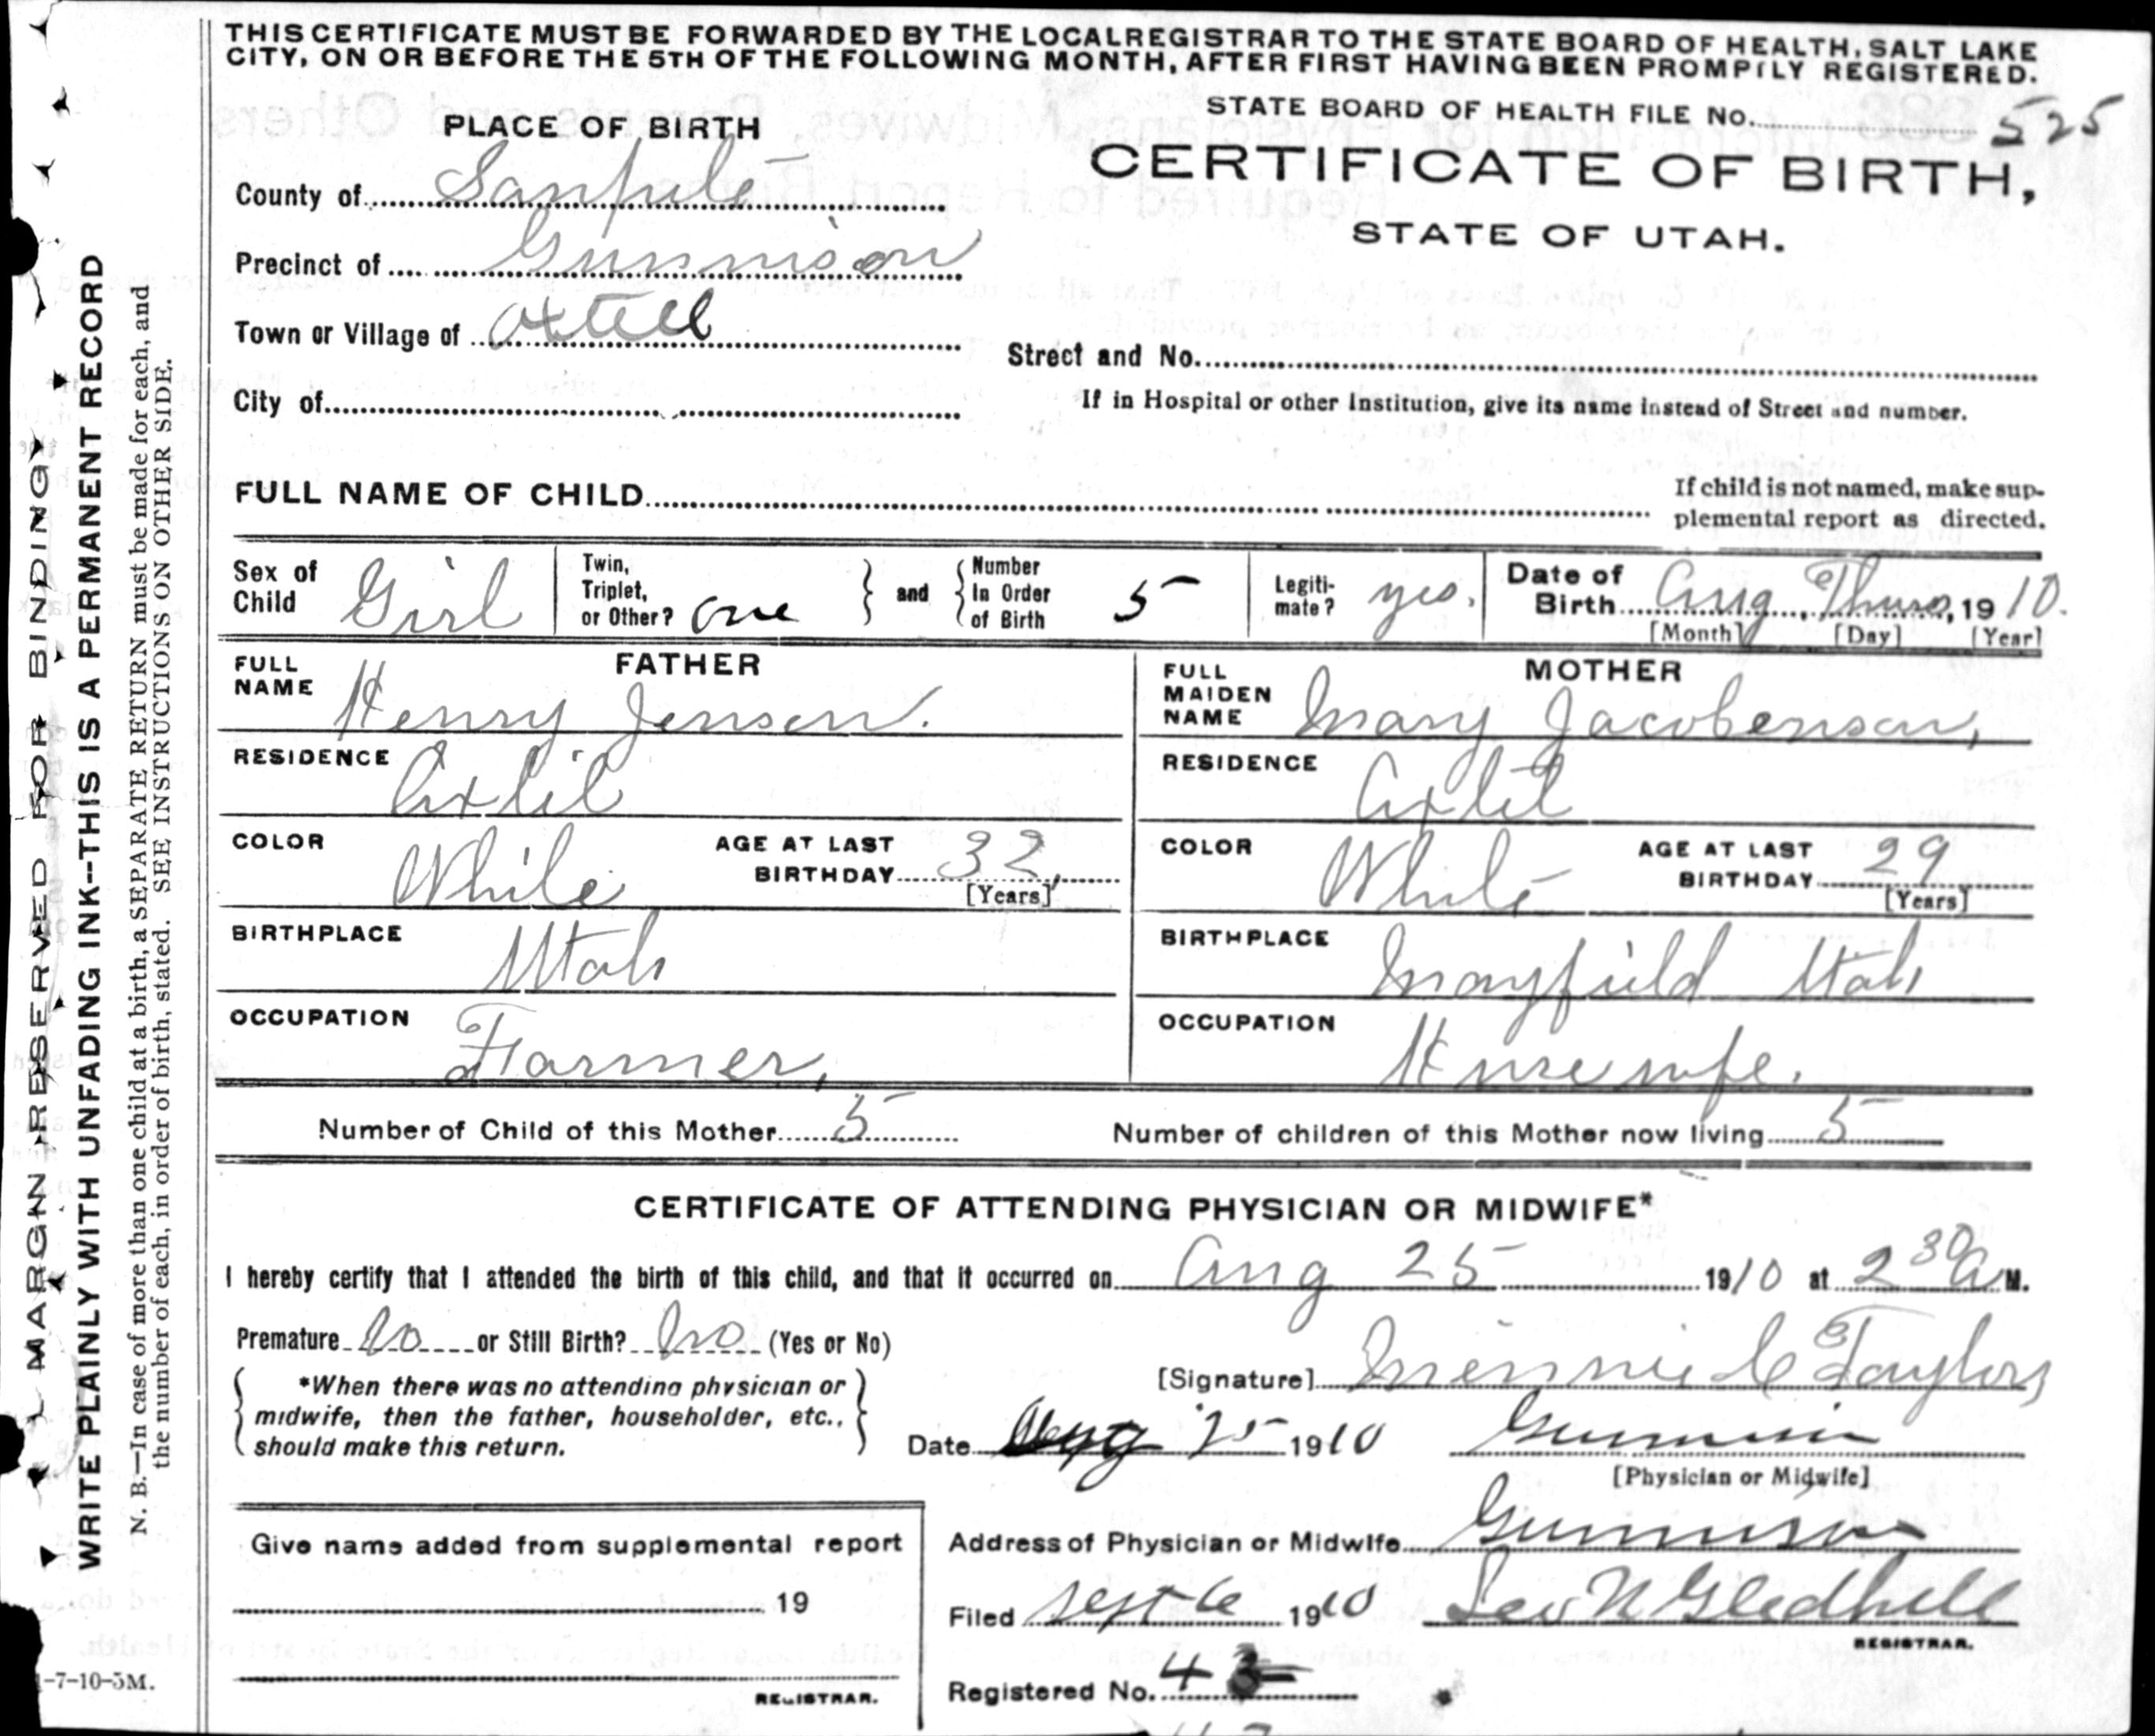 THIS CERTIFICATE MUST BE FORWARDED BY THE LOCAL REGISTRAR TO THE STATE BOARD OF HEALTH, SALT LAKE
CITY, ON OR BEFORE THE 5TH OF THE FOLLOWING MONTH, AFTER FIRST HAVING BEEN PROMPTLY REGISTERED.
STATE BOARD OF HEALTH FILE No. 525
PLACE OF BIRTH
CERTIFICATE OF BIRTH,
STATE OF UTAH.
County of Sanpete
Precinct of Gunnison
Town or Village of Axtell
Street and No.
City of
If in Hospital or other Institution, give its name instead of Street and number.
FULL NAME OF CHILD
If child is not named, make sup-
plemental report as directed.
Sex of Child Girl
Twin, Triplet, or Other? One } and { Number In Order of Birth 5
Legiti-mate? yes.
Date of Birth Aug, Thurs, 1910.
[Month] [Day] [Year]
FATHER
FULL NAME Henry Jensen.
RESIDENCE Axtil
COLOR White AGE AT LAST BIRTHDAY 32,
[Years]
BIRTHPLACE Utah
OCCUPATION Farmer,
MOTHER
FULL MAIDEN NAME Mary Jacobenson,
RESIDENCE Axtil
COLOR White AGE AT LAST BIRTHDAY 29
[Years]
BIRTHPLACE Mayfield Utah
OCCUPATION Housewife.
Number of Child of this Mother 5 Number of children of this Mother now living 5
CERTIFICATE OF ATTENDING PHYSICIAN OR MIDWIFE*
I hereby certify that I attended the birth of this child, and that it occurred on Aug 25 1910 at 2 30 A M.
Premature No or Still Birth? No (Yes or No)
[Signature] Minnie C Taylor
*When there was no attending physician or
midwife, then the father, householder, etc.,
should make this return.
Date Aug 25 1910 Gunnison
[Physician or Midwife]
Give name added from supplemental report
19
REGISTRAR.
Address of Physician or Midwife Gunnison
Filed Sept 6 1910 Leo N Gledhill
REGISTRAR.
Registered No. 4
MARGIN RESERVED FOR BINDING
WRITE PLAINLY WITH UNFADING INK--THIS IS A PERMANENT RECORD
N. B.—In case of more than one child at a birth, a SEPARATE RETURN must be made for each, and
the number of each, in order of birth, stated. SEE INSTRUCTIONS ON OTHER SIDE.
-7-10-5M.